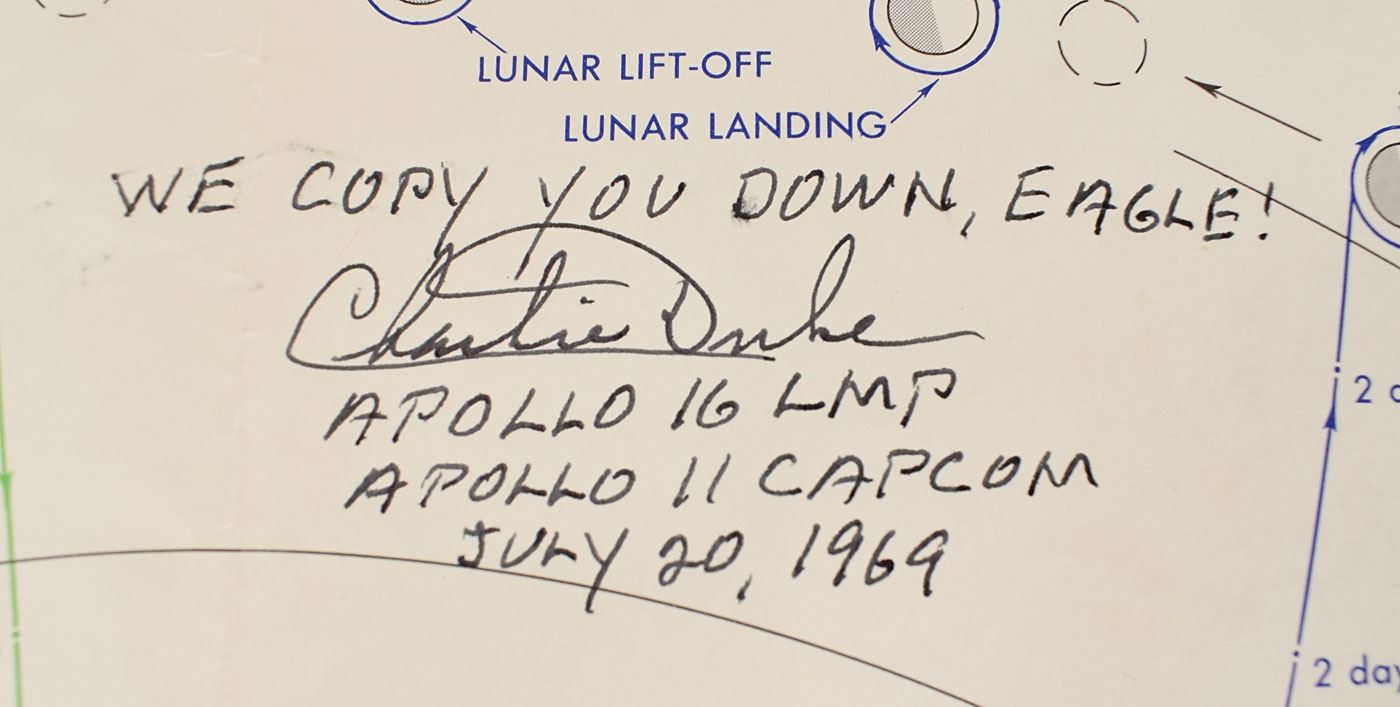 LUNAR LIFT-OFF
LUNAR LANDING
WE COPY YOU DOWN, EAGLE!
Charlie Duke
APOLLO 16 LMP
APOLLO 11 CAPCOM
JULY 20, 1969
2 day